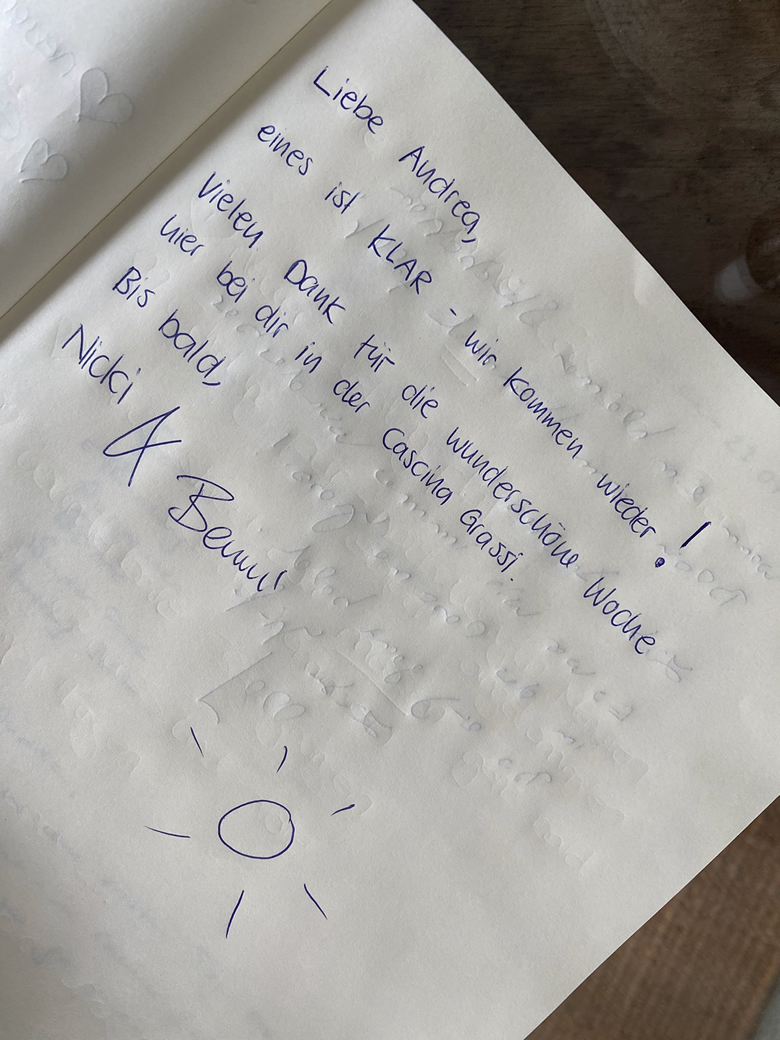 Liebe Andrea,
eines ist KLAR - wir kommen wieder!
Vielen Dank für die wunderschöne Woche
hier bei dir in der Cascina Grassi.
Bis bald,
Nicki
&